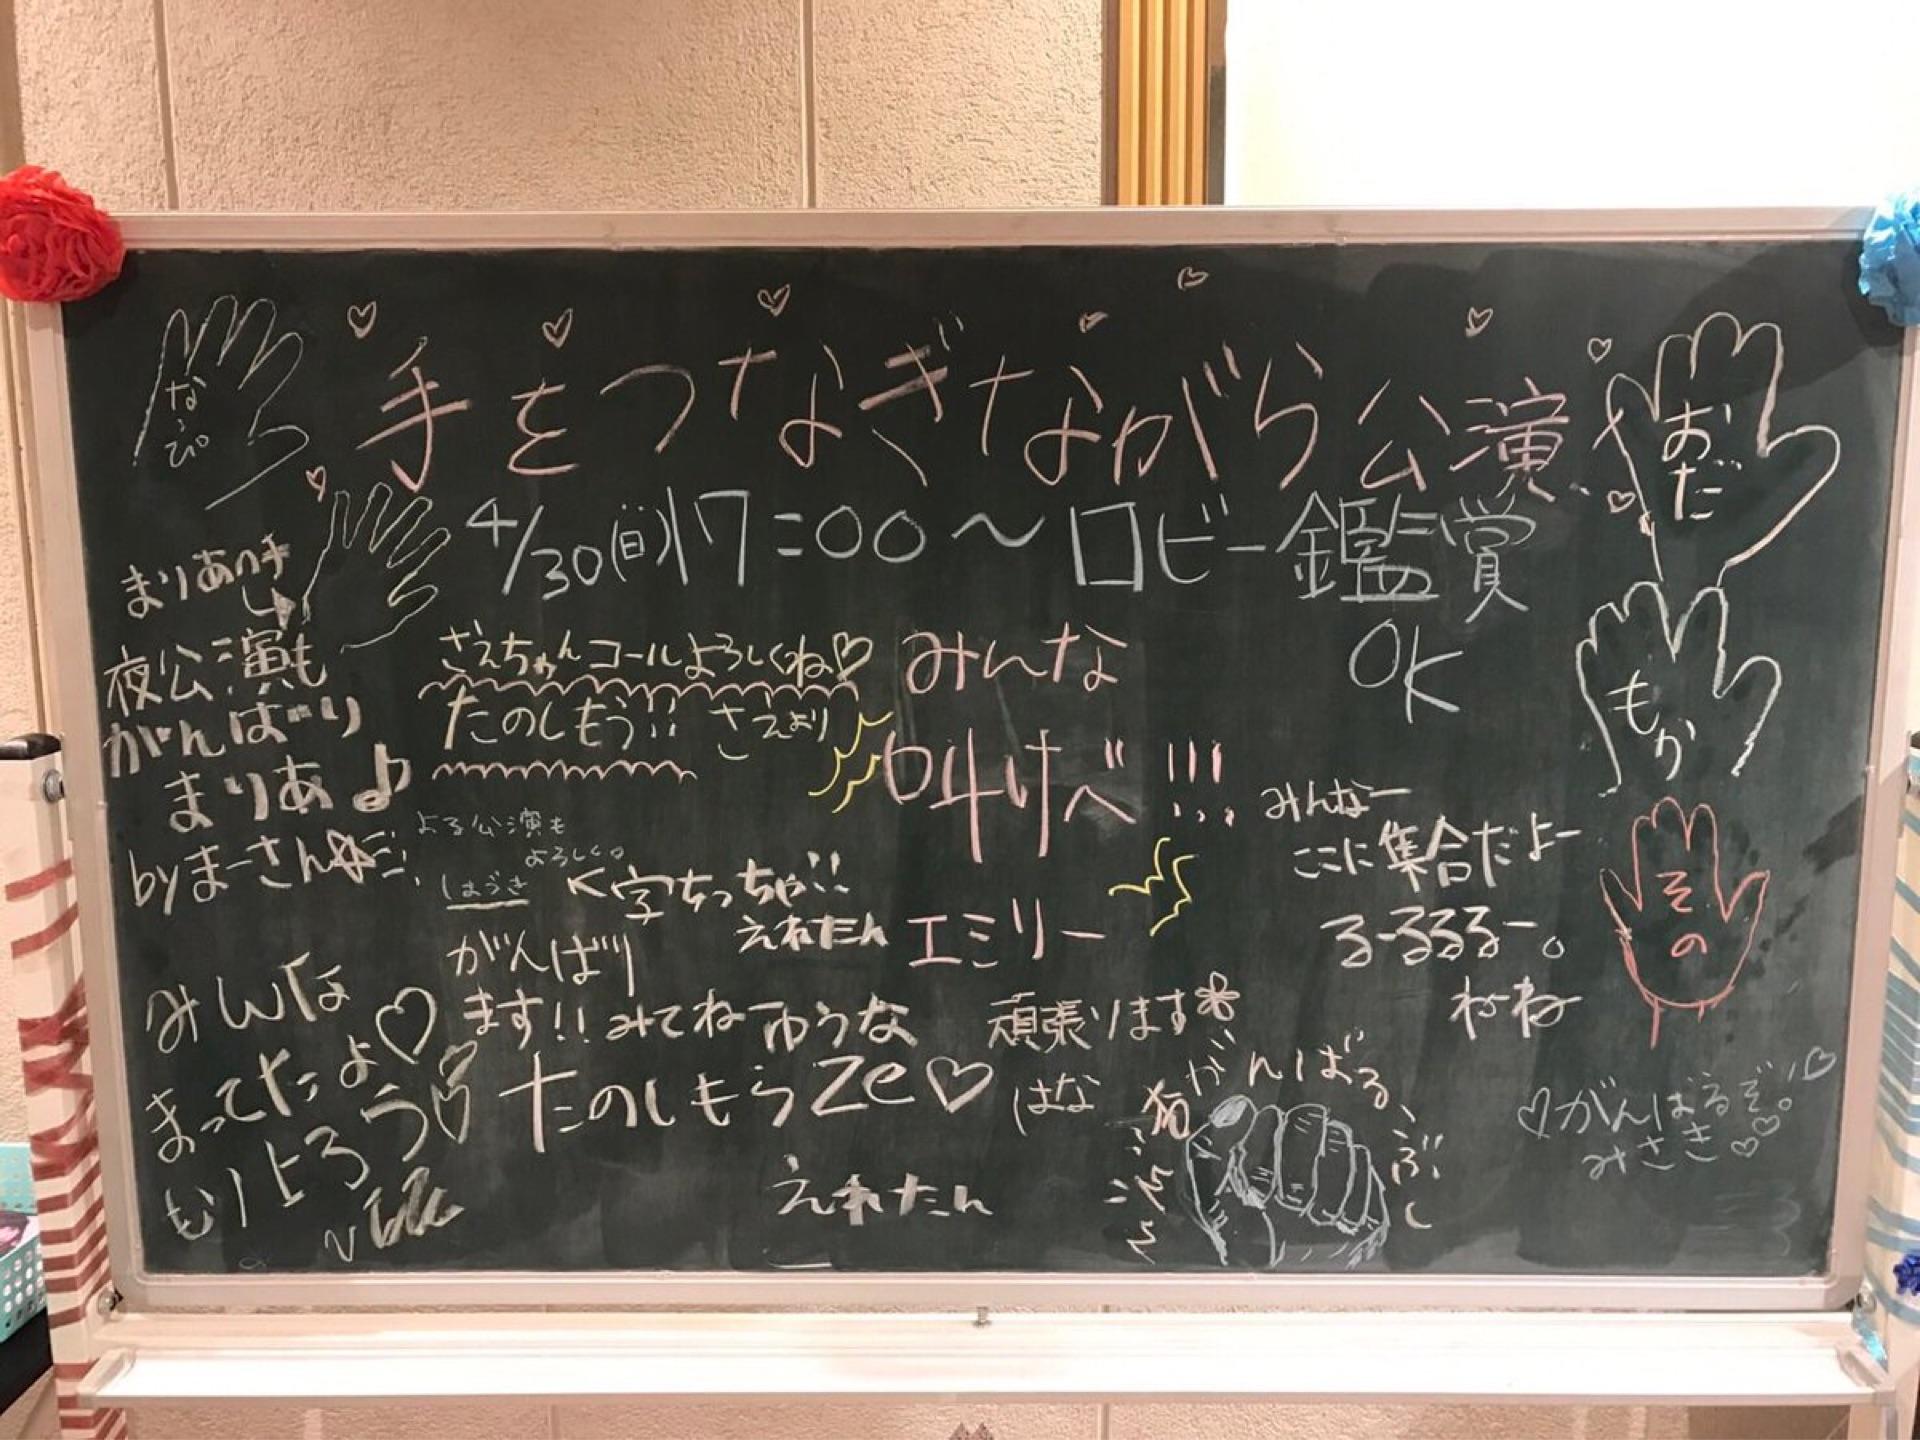 手をつなぎながら公演
4/30(日)17:00〜ロビー鑑賞
OK
なぴ
おだ
もか
その
まりあの手
夜公演も
がんばり
まりあ♪
byまーさん☆
ざえちゃんコールよろしくね♡
たのしもう!! ざえより
みんな
叫けべ!!!
エミリー
よる公演も
よろしく。
しほうき
<字ちっちゃ!!
えれたん
みんなー
ここに集合だよー
るーるるるー。
ねね
がんばり
ます!! みてねーゆうな
頑張ります
はな
みんな
まってたよ♡
もりよろう
たのしもうZe♡
えれたん
猫がんばる、
こぶし
♡がんばるぞ!♡
みさき♡♡